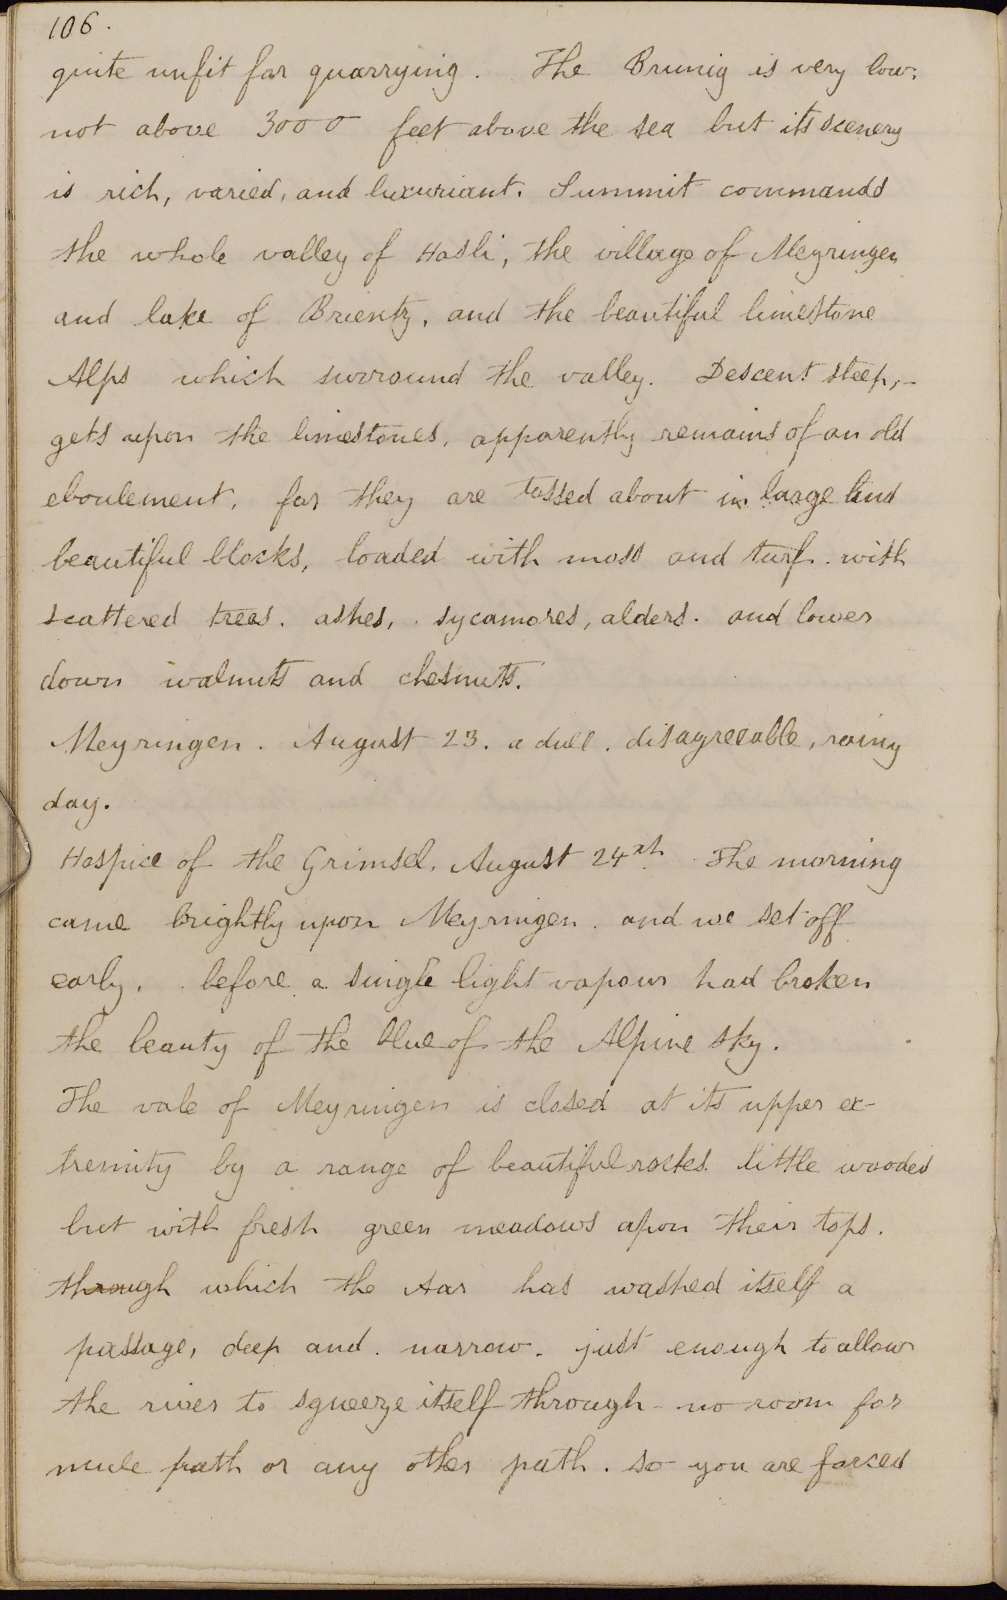 106.
quite unfit for quarrying. The Brunig is very low;
not above 3000 feet above the sea but its scenery
is rich, varied, and luxuriant. Summit commands
the whole valley of Hasli, the village of Meyringen
and lake of Brientz, and the beautiful limestone
Alps which surround the valley. Descent steep,-
gets upon the limestones, apparently remains of an old
eboulement, for they are tossed about in large and
beautiful blocks, loaded with moss and turf. with
scattered trees. ashes, sycamores, alders. and lower
down walnuts and chesnuts.
Meyringen. August 23. a dull. disagreeable, rainy
day.
Hospice of the Grimsel. August 24th. The morning
came brightly upon Meyringen. and we set off
early, before a single light vapour had broken
the beauty of the blue of the Alpine sky.
The vale of Meyringen is closed at its upper ex-
tremity by a range of beautiful rocks little wooded
but with fresh green meadows upon their tops.
through which the Aar has washed itself a
passage, deep and. narrow. just enough to allow
the river to squeeze itself through - no room for
mule path or any other path. so you are forced